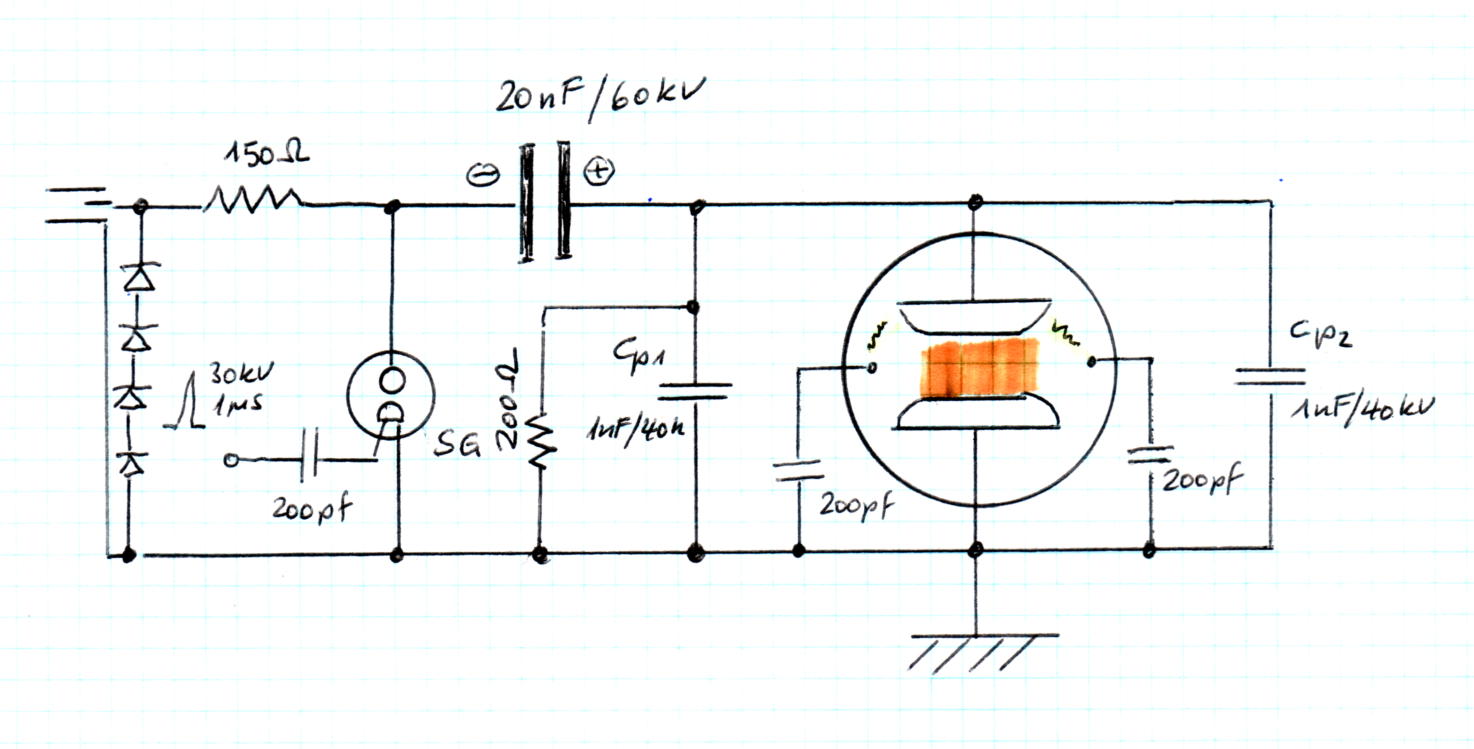 20nF/60kV
150Ω
⊖
⊕
30kV
1µs
200pf
SG
200Ω
Cp1
1nF/40k
200pf
200pf
Cp2
1nF/40kV